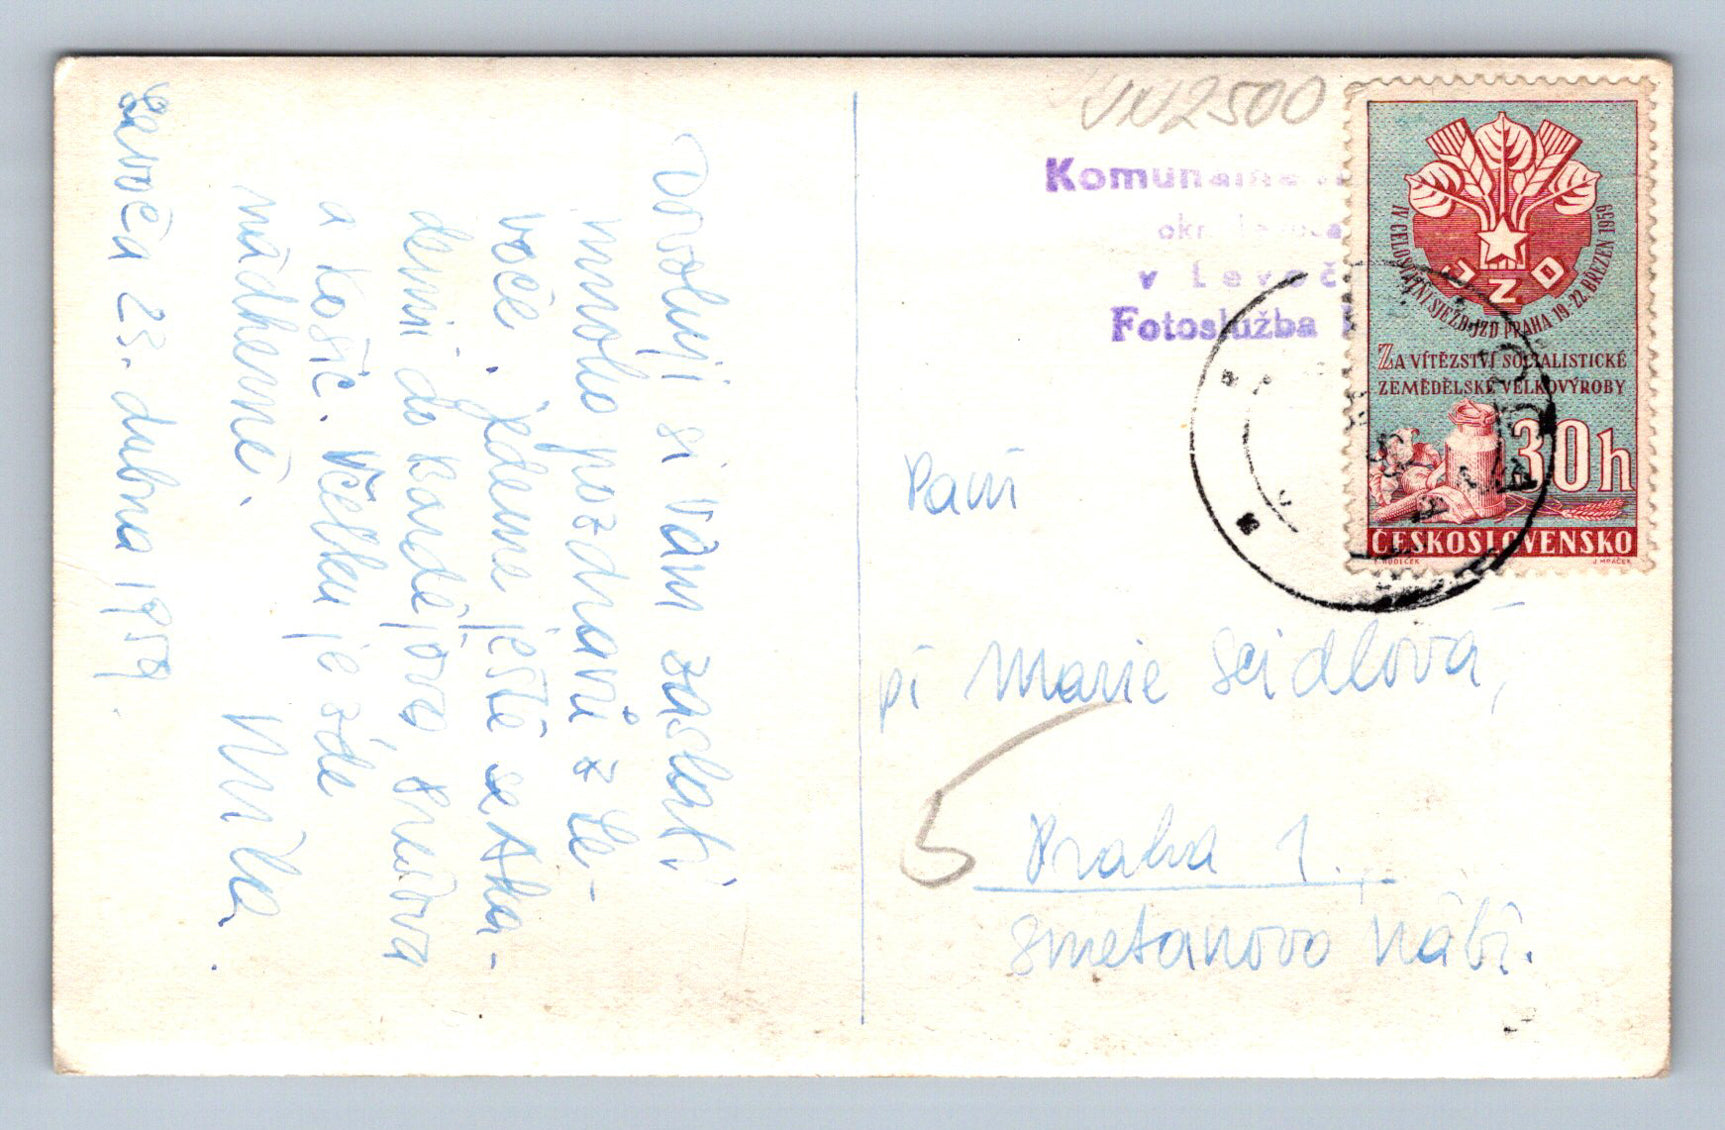 Dovoluji si Vám zaslati
mnoho pozdravů z Le-
voče. Jedeme ještě se Ska-
lemi do Bardějova, Prešova
a Košic. Včelku je zde
nádherně.
Mirka.
Levoča 23. dubna 1959.
2500
Komunálne
okr.
v Levoč
Fotoslužba
IV CELOSTÁTNÍ SJEZD JZD PRAHA 19-22. BŘEZEN 1959
JZD
ZA VÍTĚZSTVÍ SOCIALISTICKÉ
ZEMĚDĚLSKÉ VELKOVÝROBY
30h
ČESKOSLOVENSKO
J. MRÁČEK
Paní
pí Marie Seidlová,
5
Praha 1.
Smetanovo nábř.